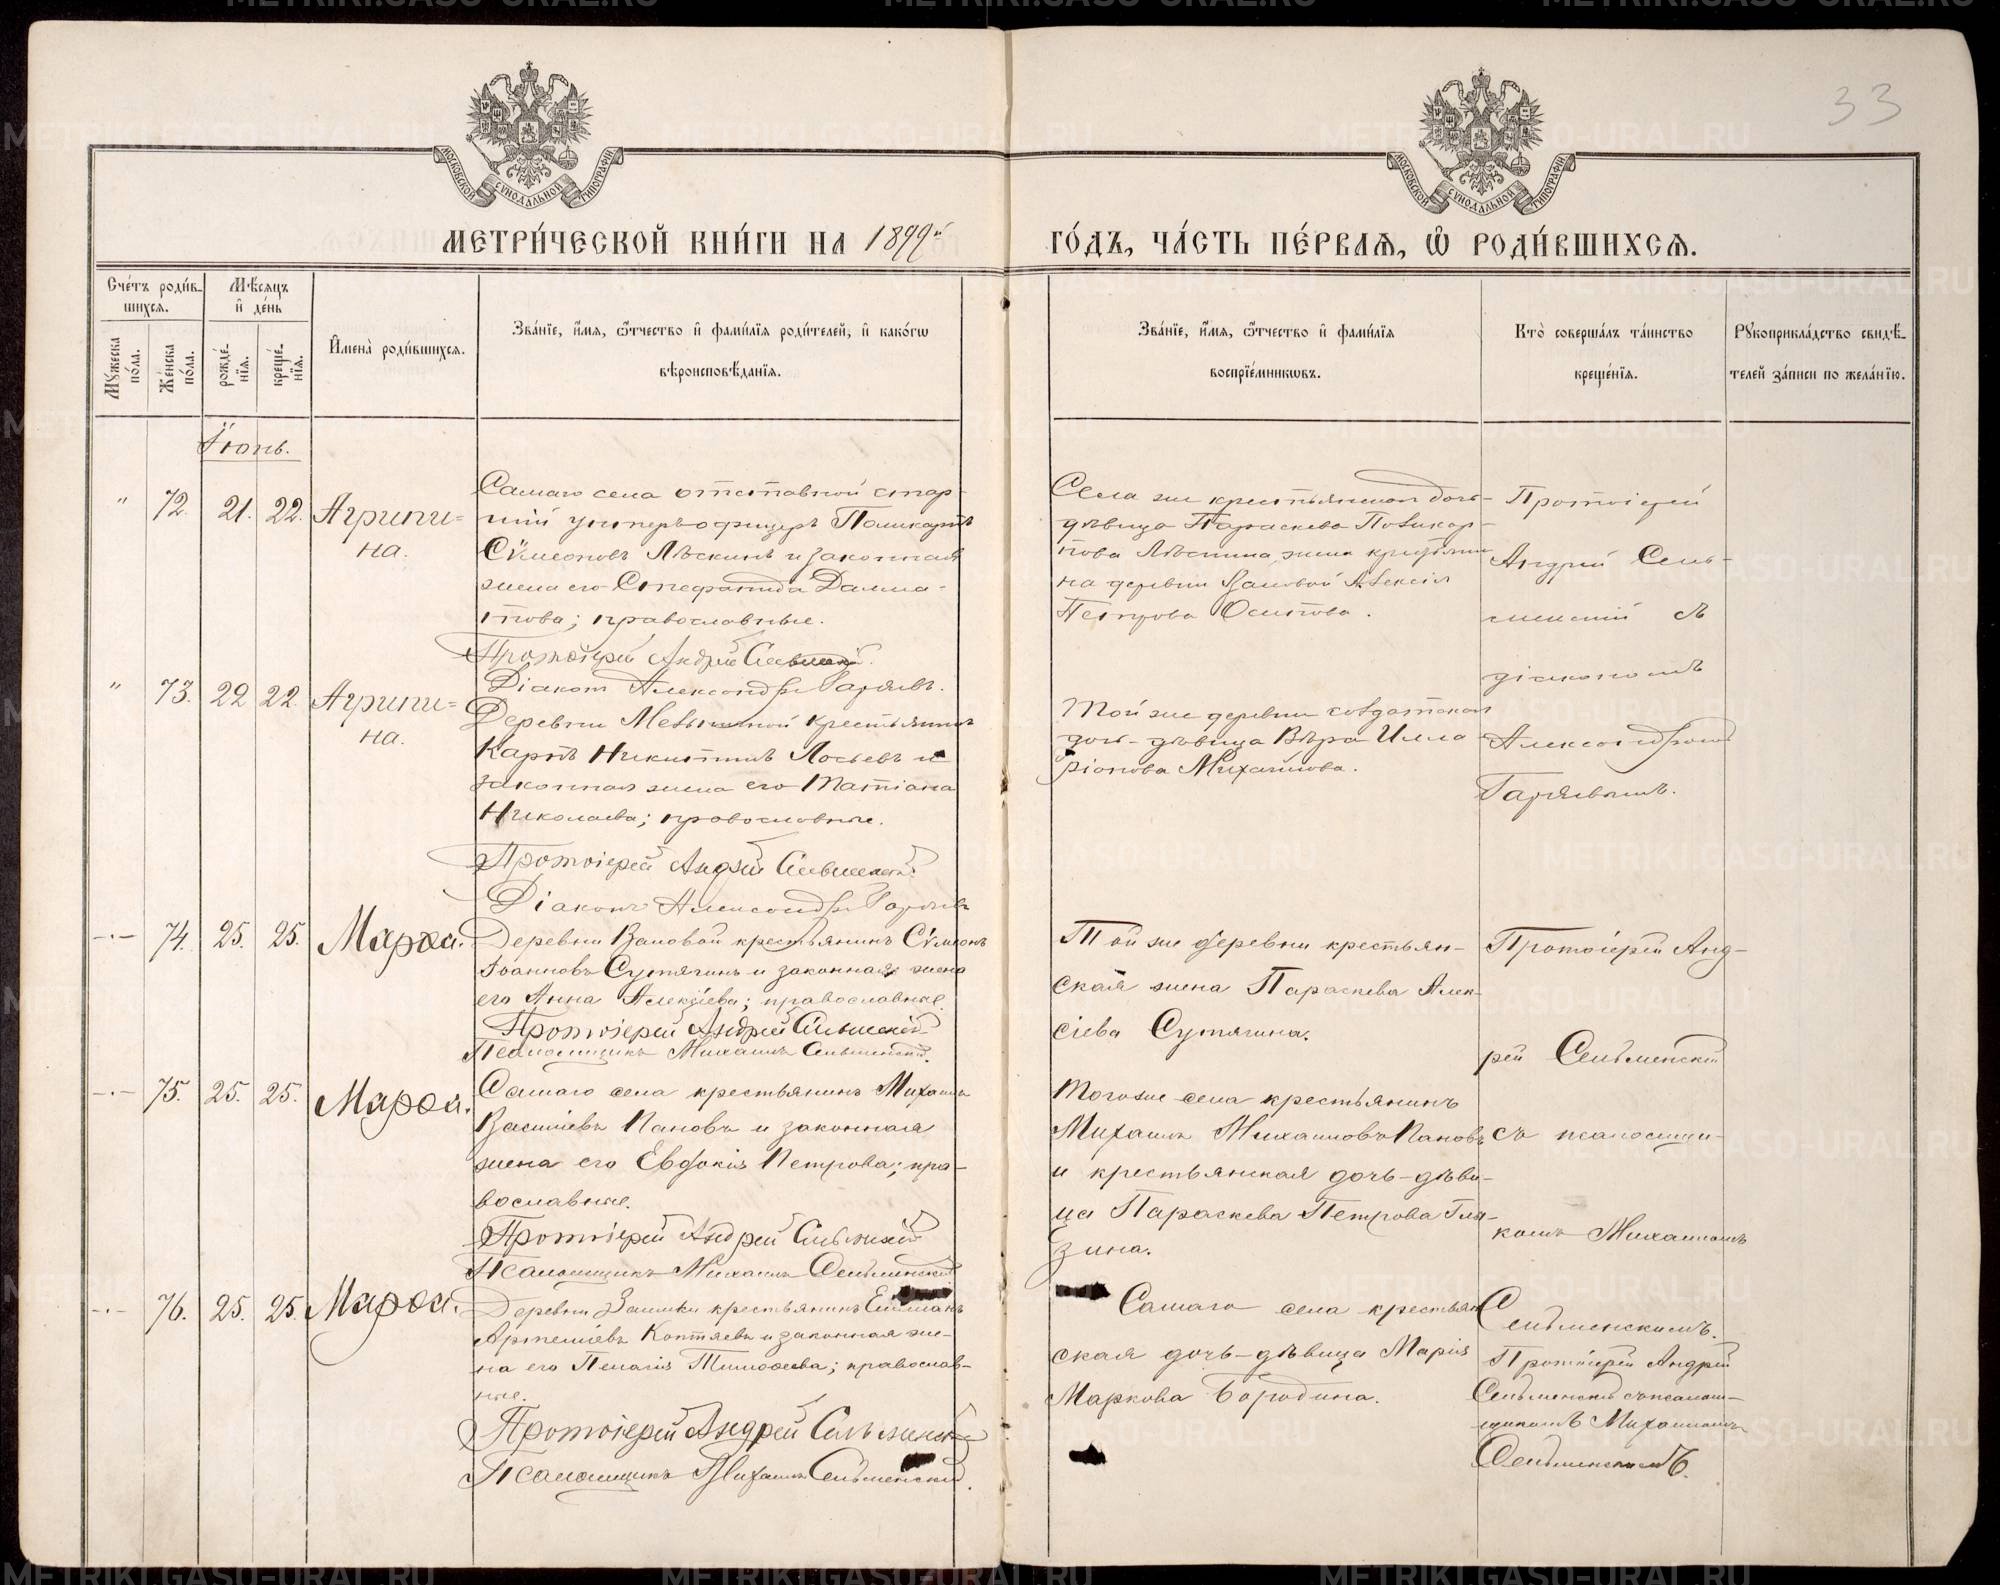 33
МЕТРИ́ЧЕСКОЙ КНИ́ГИ НА 1899й
ГО́ДЪ, ЧА́СТЬ ПЕ́РВАЯ, Ѡ РОДИ́ВШИХСЯ.
Сче́тъ роди́в-
шихся.
Мужеска по́ла.
Же́нска по́ла.
Мѣ́сяцъ
и де́нь
рожде́нїя.
креще́нїя.
Имена̀ роди́вшихся.
Зва́нїе, и́мя, ѻ́тчество и фами́лїя роди́телей, и како́гѡ
вѣроисповѣ́данїя.
Зва́нїе, и́мя, ѻ́тчество и фами́лїя
воспрїе́мникѡвъ.
Кто̀ соверша́лъ та́инство
креще́нїя.
Рукоприкла́дство свидѣ́-
телей за́писи по жела́нїю.
Іюнь.
" 72. 21. 22. Агрипи-
на.
Самаго села отставной стар-
шій унтеръ-офицеръ Поликарпъ
Сѷмеоновъ Лѣскинъ и законная
жена его Стефанида Далма-
това; православные.
Протоіерей Андрей Сельменскій.
Діаконъ Александръ Гаряевъ.
Села же крестьянская дочь-
дѣвица Параскева Поликар-
пова Лѣскина жена крестьяни-
на деревни Вановой Алексія
Петрова Осипова.
Протоіерей
Андрей Сель-
менскій съ
діакономъ
Александромъ
Гаряевымъ.
" 73. 22 22. Агрипи-
на.
Деревни крестьянинъ
Карпъ Никитинъ Лосьевъ и
законная жена его Татіана
Николаева; православные.
Протоіерей Андрей Сельменскій.
Діаконъ Александръ Гаряевъ
Той же деревни солдатская
дочь-дѣвица Вѣра Илла-
ріонова Михайлова.
-·- 74. 25. 25. Марѳа.
Деревни Вановой крестьянинъ Сѷмеонъ
Іоанновъ Сутягинъ и законная жена
его Анна Алексіева; православные.
Протоіерей Андрей Сельменскій
Псаломщикъ Михаилъ Сельменскій.
Той же деревни крестьян-
ская жена Параскева Алек-
сіева Сутягина.
Протоіерей Анд-
рей Сельменскій
съ псаломщи-
комъ Михаиломъ
Сельменскимъ.
-·- 75. 25. 25. Марѳа.
Самаго села крестьянинъ Михаилъ
Василіевъ Пановъ и законная
жена его Евдокія Петрова; пра-
вославные.
Протоіерей Андрей Сельменскій
Псаломщикъ Михаилъ Сельменскій
Тогоже села крестьянинъ
Михаилъ Михаиловъ Пановъ
и крестьянская дочь-дѣви-
ца Параскева Петрова Гла-
зина.
-·- 76. 25. 25. Марѳа.
Деревни Заимки крестьянинъ
Артеміевъ Коптяевъ и законная же-
на его Пелагія Тимоѳеева; православ-
ные.
Протоіерей Андрей Сельменскій
Псаломщикъ Михаилъ Сельменскій.
Самаго села крестьян-
ская дочь-дѣвица Марія
Маркова Бородина.
Протоіерей Андрей
Сельменскій съ псалом-
щикомъ Михаиломъ
Сельменскимъ.
METRIKI.GASO-URAL.RU